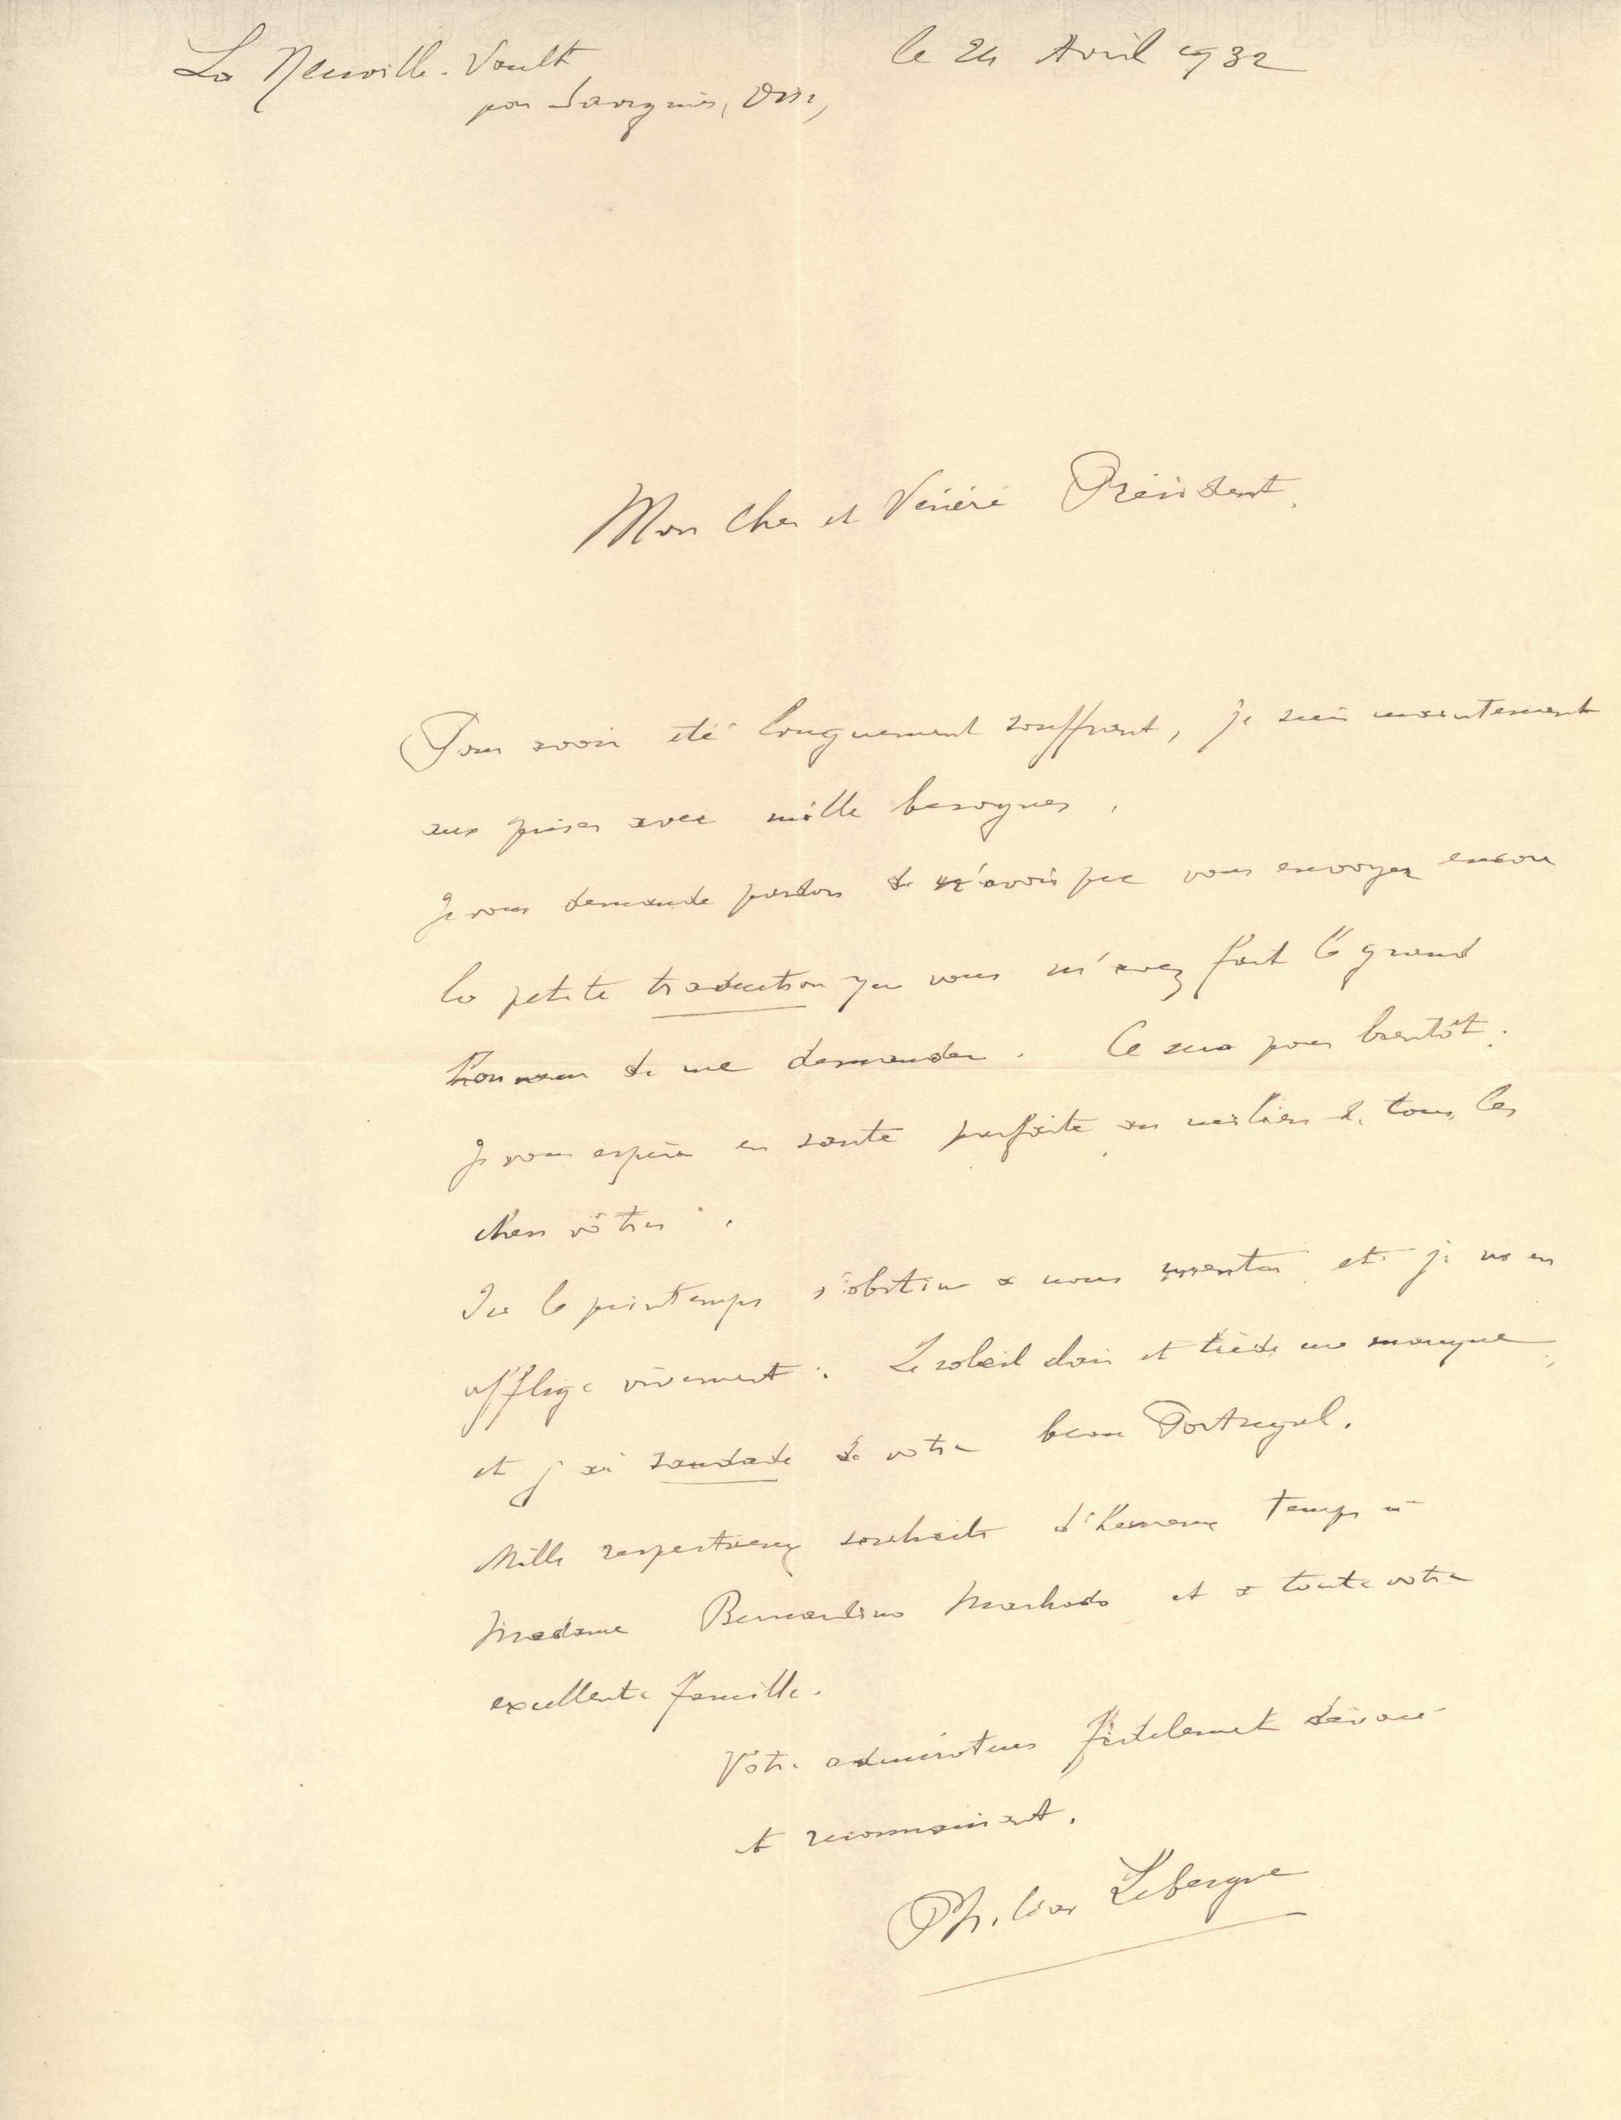 La Neuville-Vault
par Savignies, Oise,
le 24 Avril 1932
Mon Cher et Vénéré Président,
Pour avoir été longuement souffrant, je suis maintenant
aux prises avec mille besognes.
Je vous demande pardon de n'avoir pu vous envoyer encore
la petite traduction que vous m'avez fait le grand
honneur de me demander. Ce sera pour bientôt.
Je vous espère en santé parfaite au milieu de tous les
chers vôtres.
Ici le printemps s'obstine à nous mentir et je m'en
afflige vivement. Le soleil clair et tiède me manque
et j'ai saudade de votre beau Portugal.
Mille respectueux souhaits d'heureux temps à
Madame Bernardino Machado et à toute votre
excellente famille.
Votre admirateur fidèlement dévoué
et reconnaissant.
Philéas Lebesgue